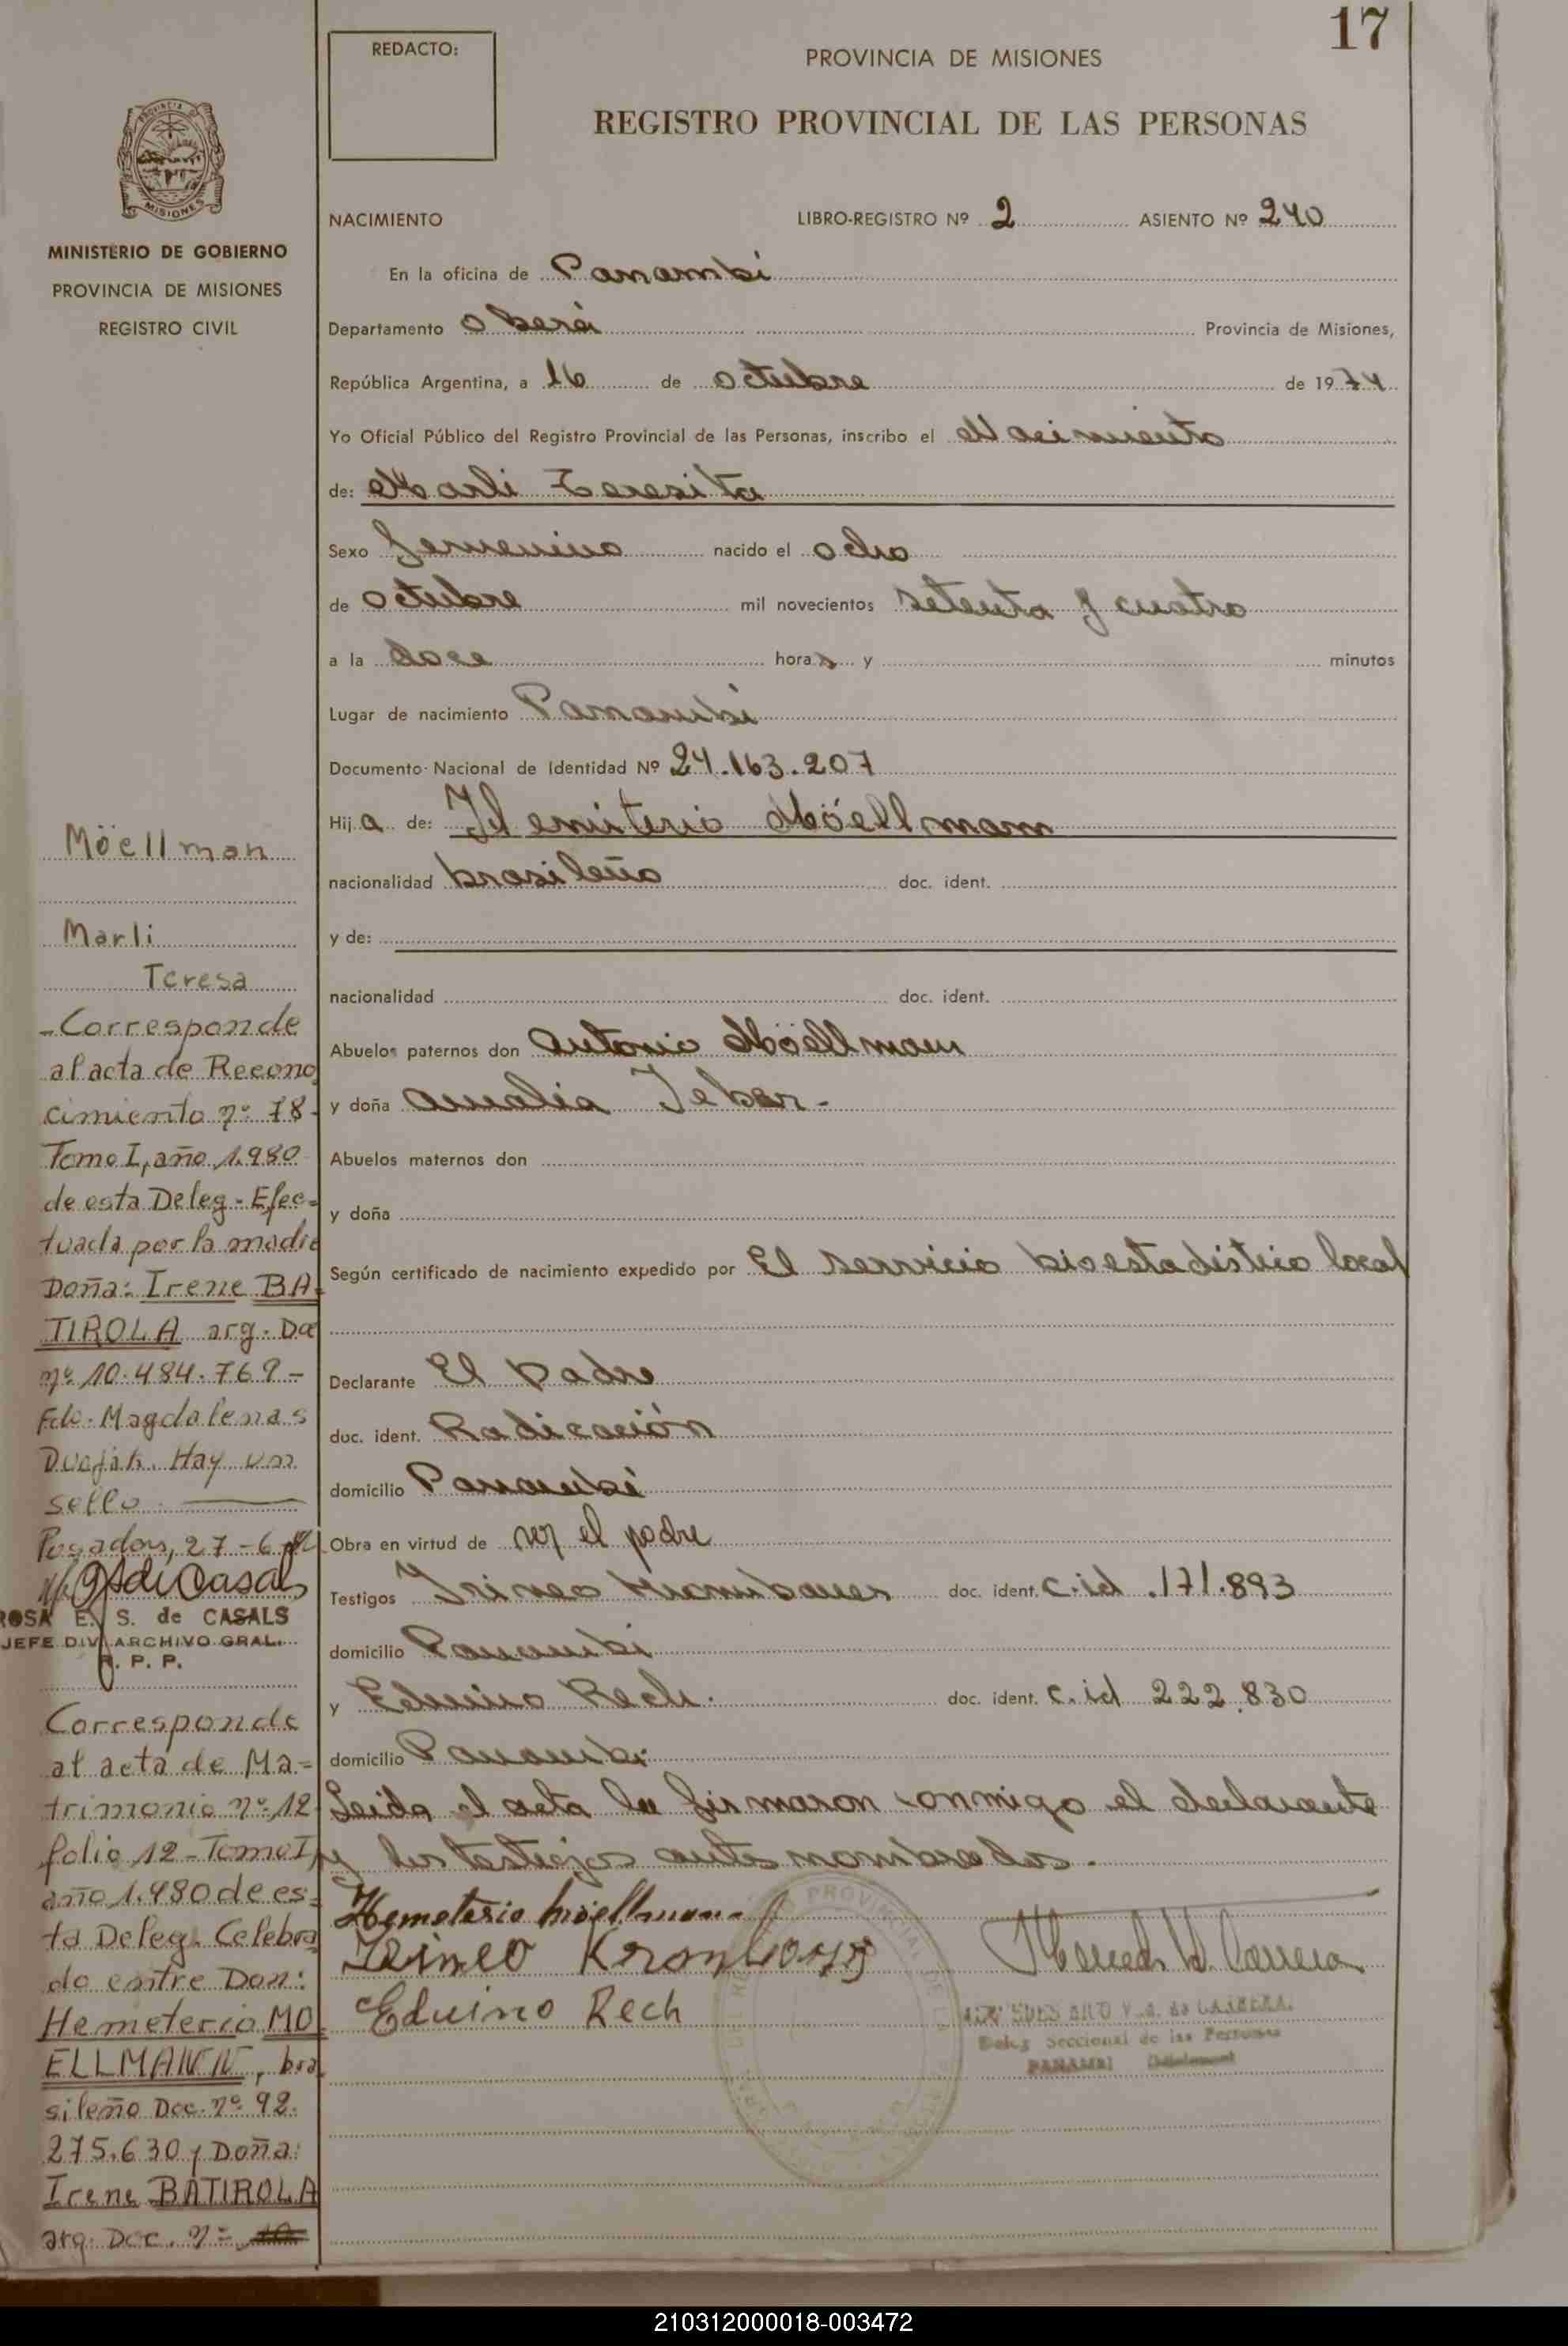 17
REDACTO:
PROVINCIA DE MISIONES
REGISTRO PROVINCIAL DE LAS PERSONAS
MISIONES
MINISTERIO DE GOBIERNO
PROVINCIA DE MISIONES
REGISTRO CIVIL
NACIMIENTO LIBRO-REGISTRO Nº 2 ASIENTO Nº 240
En la oficina de Panambi
Departamento Oberá Provincia de Misiones,
República Argentina, a 16 de octubre de 1974
Yo Oficial Público del Registro Provincial de las Personas, inscribo el Nacimiento
de: Marli Teresita
Sexo femenino nacido el ocho
de octubre mil novecientos setenta y cuatro
a la doce horas y minutos
Lugar de nacimiento Panambi
Documento Nacional de Identidad Nº 24.163.207
Hija de: Hemiterio Möellmann
nacionalidad brasileño doc. ident.
y de:
nacionalidad doc. ident.
Abuelos paternos don Antonio Möellmann
y doña Amalia
Abuelos maternos don
y doña
Según certificado de nacimiento expedido por El servicio bioestadístico local
Declarante El padre
doc. ident. Radicación
domicilio Panambi
Obra en virtud de ser el padre
Testigos Irineo doc. ident. c.id .171.893
domicilio Panambi
y Eduino Rech. doc. ident. c.id 222.830
domicilio Panambi
Leida el acta la firmaron conmigo el declarante
y los testigos antes nombrados.
Hemeterio Möellmann
Irineo
Eduino Rech
Möellman
Marli
Teresa
-Corresponde
al acta de Recono
cimiento nº 78-
Tomo I, año 1.980
de esta Deleg- Efec-
tuada por la madre
Doña: Irene BA-
TIROLA arg. Doc
nº 10.484.769-
Fdo. Magdalena S
Hay un
sello.
Posadas, 27-6-
ROSA E. S. de CASALS
JEFE DIV. ARCHIVO GRAL.
R. P. P.
Corresponde
al acta de Ma-
trimonio nº 12
folio 12-Tomo I,
año 1.980 de es-
ta Deleg. Celebra
do entre Don:
Hemeterio MO
ELLMANN, bra
sileño Doc. nº 92.
275.630 y Doña:
Irene BATIROLA
arg. Doc. nº
210312000018-003472